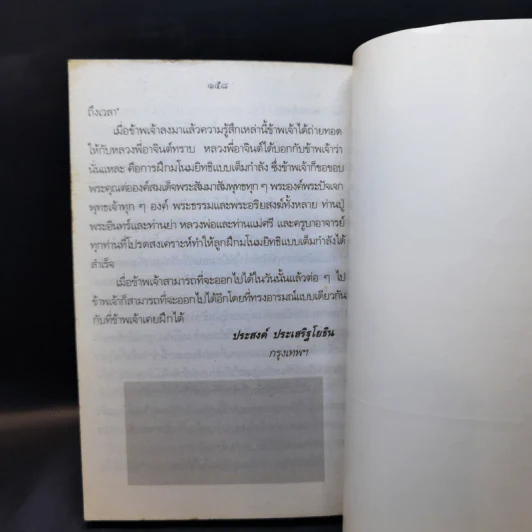 ๑๕๘
ถึงเวลา"
เมื่อข้าพเจ้าลงมาแล้วความรู้สึกเหล่านี้ข้าพเจ้าได้ถ่ายทอด
ให้กับหลวงพี่อาจินต์ทราบ หลวงพี่อาจินต์ได้บอกกับข้าพเจ้าว่า
นั่นแหละ คือการฝึกมโนมยิทธิแบบเต็มกำลัง ซึ่งข้าพเจ้าก็ขอขอบ
พระคุณต่อองค์สมเด็จพระสัมมาสัมพุทธทุก ๆ พระองค์พระปัจเจก
พุทธเจ้าทุก ๆ องค์ พระธรรมและพระอริยสงฆ์ทั้งหลาย ท่านปู่
พระอินทร์และท่านย่า หลวงพ่อและท่านแม่ศรี และครูบาอาจารย์
ทุกท่านที่โปรดสงเคราะห์ทำให้ลูกฝึกมโนมยิทธิแบบเต็มกำลังได้
สำเร็จ
เมื่อข้าพเจ้าสามารถที่จะออกไปได้ในวันนั้นแล้วต่อ ๆ ไป
ข้าพเจ้าก็สามารถที่จะออกไปได้อีกโดยที่ทรงอารมณ์แบบเดียวกัน
กับที่ข้าพเจ้าเคยฝึกได้
ประสงค์ ประเสริฐโยธิน
กรุงเทพฯ